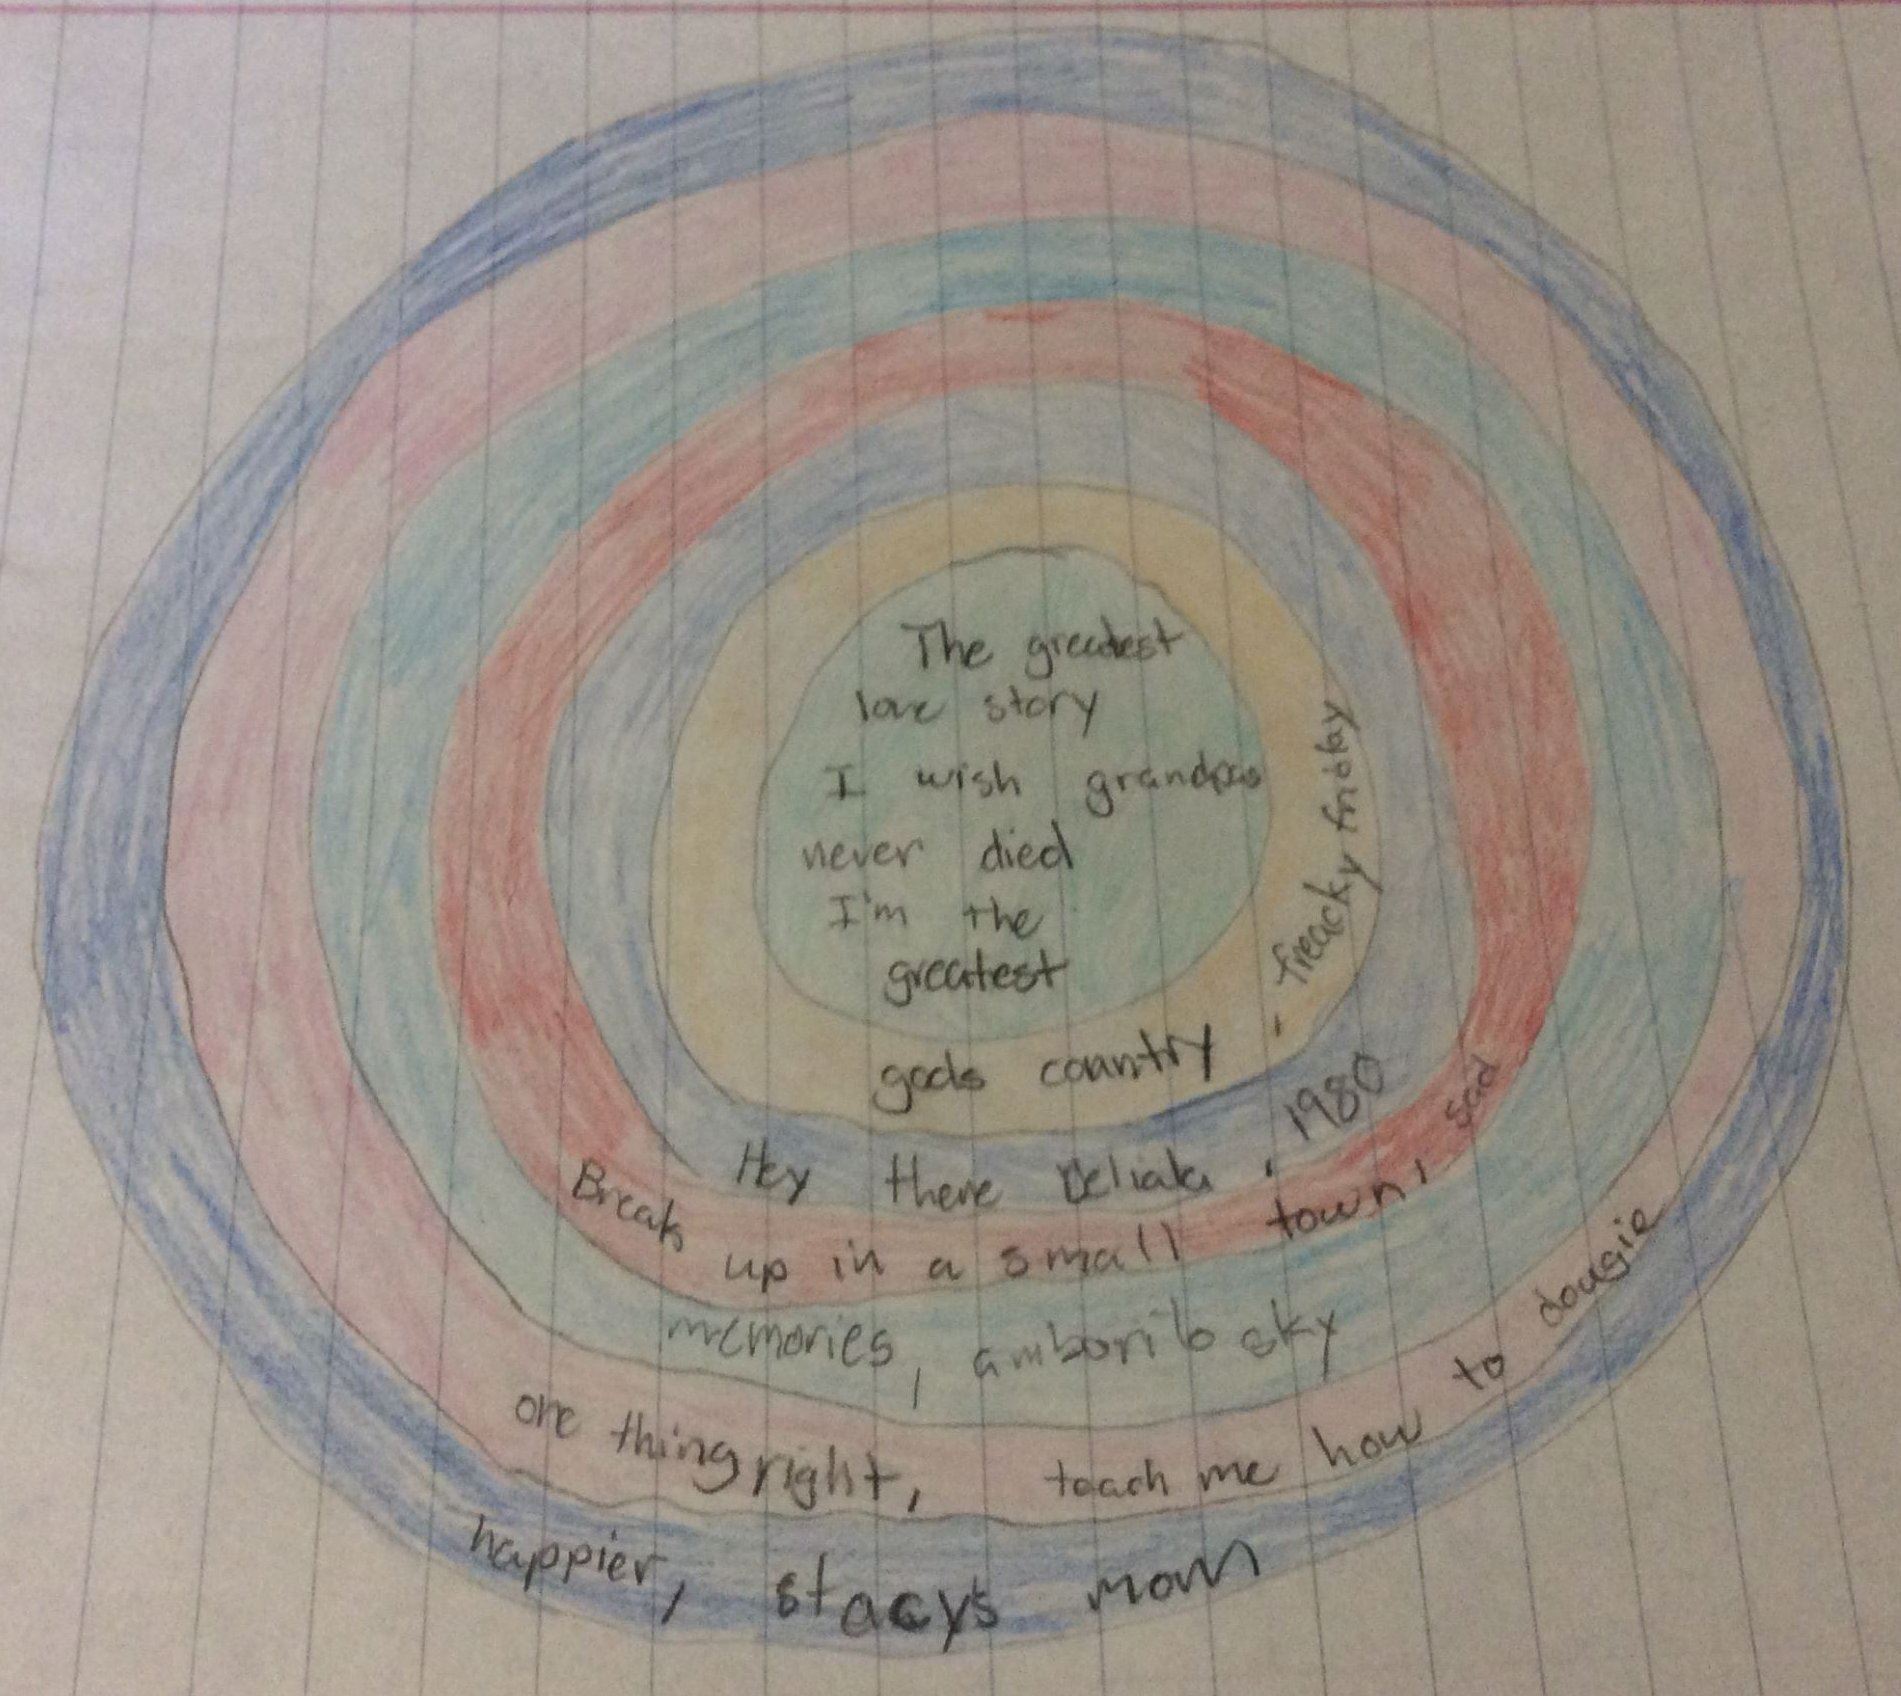 The greatest
love story
I wish grandpas
never died
I'm the
greatest
gods country, freacky friday
Hey there Deliala, 1980
Break up in a small town, sad
memories, amborilo sky
one thing right, teach me how to dougie
happier, stacys mom